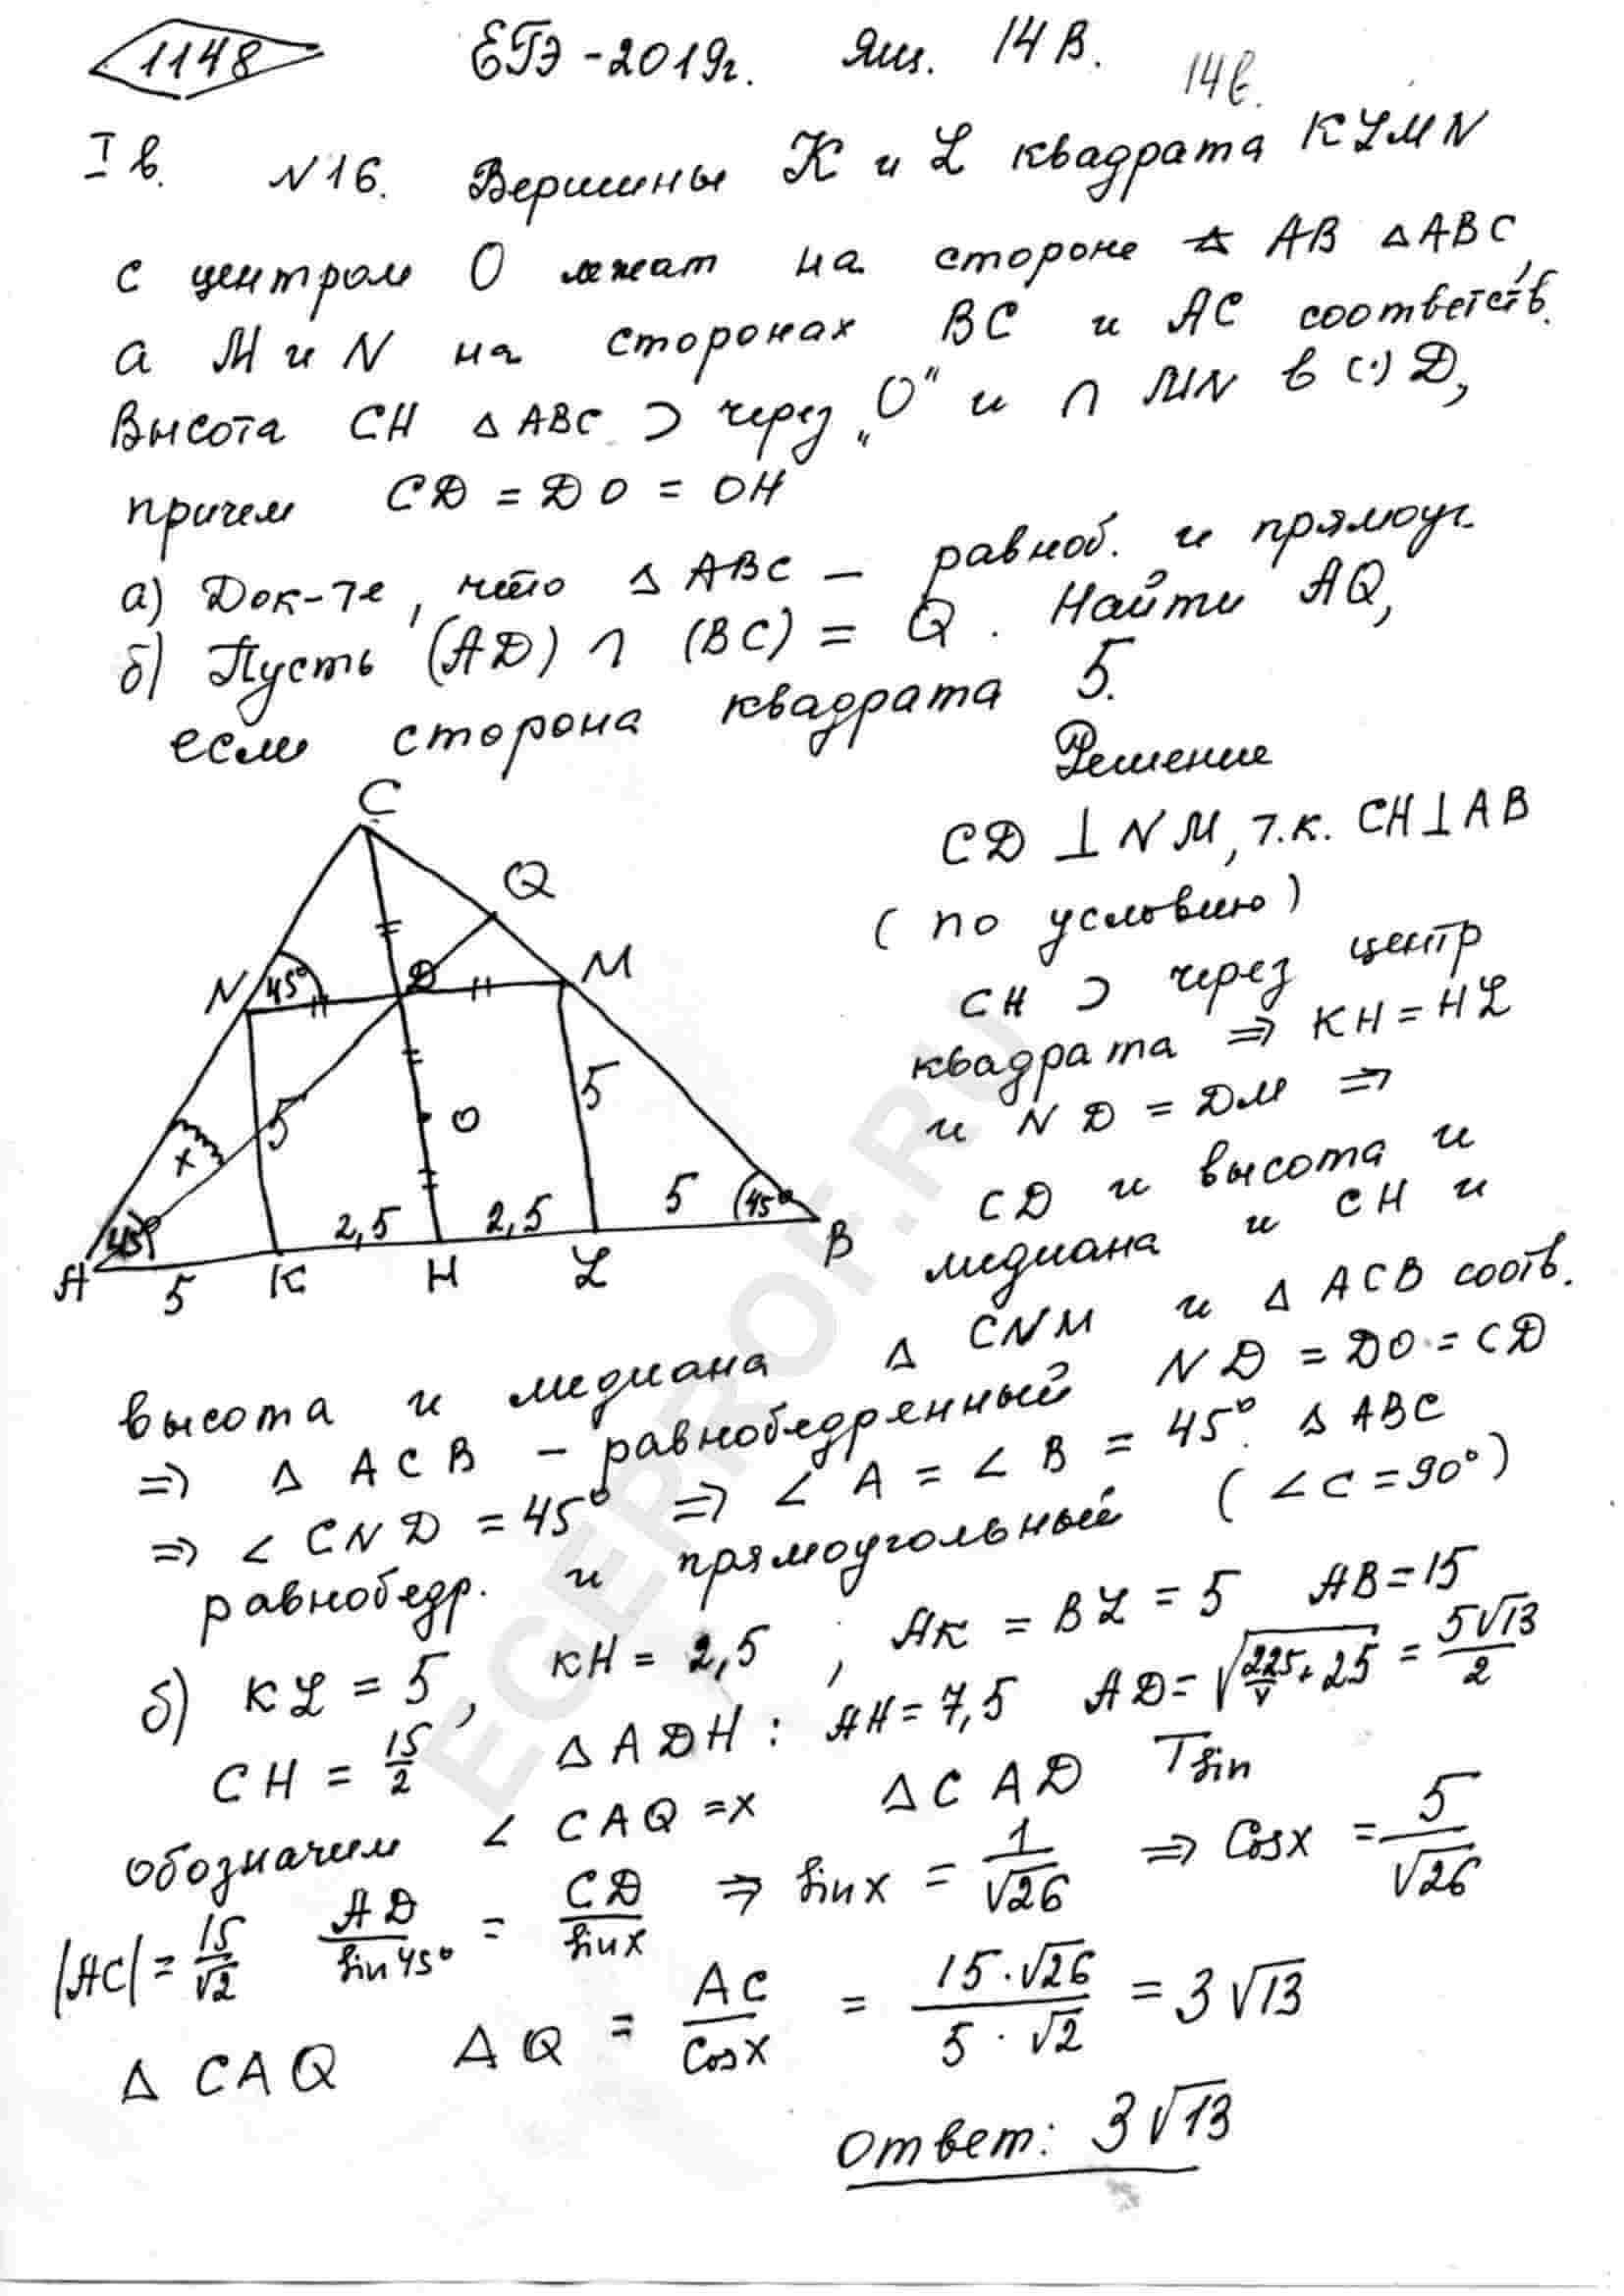 1148 ЕГЭ-2019г. Ящ. 14В. 14в.
I в. №16. Вершины K и L квадрата KLMN
с центром O лежат на стороне AB △ABC,
а M и N на сторонах BC и AC соответств.
Высота CH △ABC ⊃ через „O" и ∩ MN в (·) D,
причем CD = DO = OH
а) Док-те, что △ABC – равноб. и прямоуг.
б) Пусть (AD) ∩ (BC) = Q. Найти AQ,
если сторона квадрата 5.
Решение
C
Q
N 45° D M
5 O 5
x
45° 2,5 2,5 5 45°
A 5 K H L B
CD ⊥ NM, т.к. CH ⊥ AB
(по условию)
CH ⊃ через центр
квадрата ⇒ KH = HL
и ND = DM ⇒
CD и высота и
медиана и CH и
высота и медиана △ CNM и △ ACB соотв.
⇒ △ ACB – равнобедренный ND = DO = CD
⇒ ∠ CND = 45° ⇒ ∠ A = ∠ B = 45°. △ ABC
равнобедр. и прямоугольный (∠C = 90°)
б) KL = 5, KH = 2,5 ; AK = BL = 5 AB = 15
CH = 15/2 △ ADH: AH = 7,5 AD = √(225/4 + 25) = 5√13/2
обозначим ∠ CAQ = x △ CAD Tsin
|AC| = 15/√2 AD/sin45° = CD/sinx ⇒ sinx = 1/√26 ⇒ Cosx = 5/√26
△ CAQ AQ = AC/Cosx = 15·√26/5·√2 = 3√13
Ответ: 3√13
EGEPROF.RU